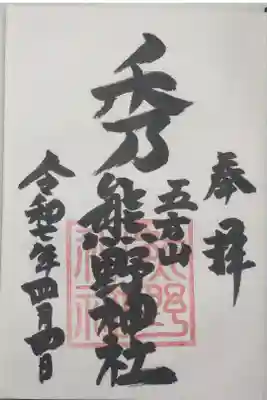 奉拝
五方山
秀
熊野神社
令和七年四月四日